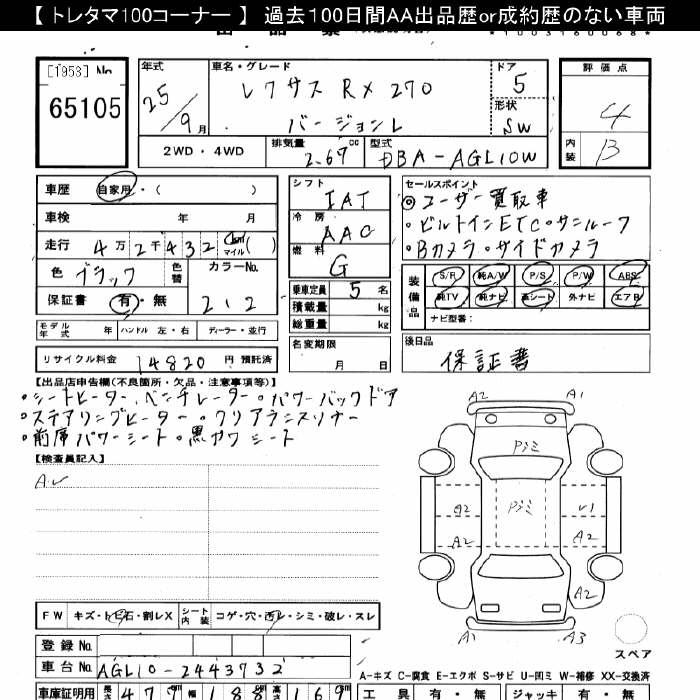 【 トレタマ100コーナー 】 過去100日間AA出品歴or成約歴のない車両
[1953] No 65105
年式 25/9月
車名・グレード レクサス RX 270 バージョンL
ドア 5
形状 SW
評価点 4
内装 B
2WD・4WD
排気量 2.67 cc
型式 DBA-AGL10W
車歴 自家用・( )
車検 年 月
走行 4万2千432 km マイル ( )
色 ブラック 色替
カラーNo. 212
保証書 有・無
モデル年式 年 ハンドル 左・右 ディーラー・並行
リサイクル料金 14820 円 預託済
シフト IAT
冷房 AAC
燃料 G
乗車定員 5 名
積載量 kg
総重量 kg
名変期限 月 日
セールスポイント
◎ユーザー買取車
・ビルトインETC・サンルーフ
・Bカメラ・サイドカメラ
装備品 S/R 純A/W P/S P/W ABS
純TV 純ナビ 革シート 外ナビ エアB
ナビ型番:
後日品 保証書
【出品店申告欄(不良箇所・欠品・注意事項等)】
・シートヒーター、ベンチレーター・パワーバックドア
・ステアリングヒーター・クリアランスソナー
・前席パワーシート・黒ガワシート
【検査員記入】
A✓
A2 A1
Pシミ
A2 Pシミ U1
A2 A2
A2
A1 A3
スペア
FW キズ・トビ石・割レX シート内装 コゲ・穴・汚レ・シミ・破レ・スレ
登録 No.
車台 No. AGL10-2443732
A-キズ C-腐食 E-エクボ S-サビ U-凹ミ W-補修 XX-交換済
車庫証明用 長さ 477 cm 幅 188 cm 高さ 169 cm
工具 有・無 ジャッキ 有・無